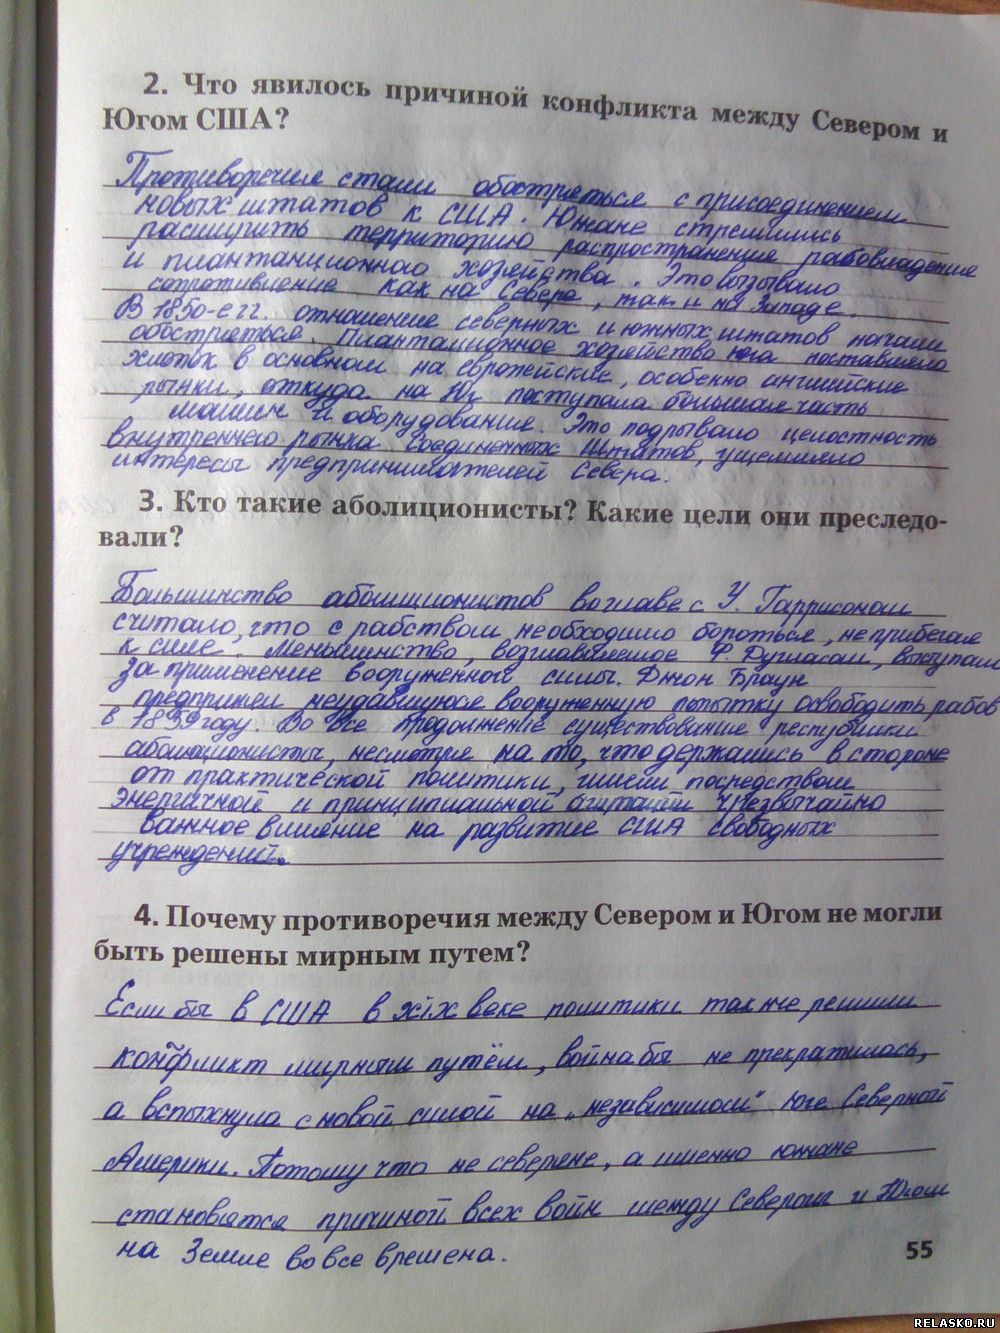 2. Что явилось причиной конфликта между Севером и
Югом США?
Противоречия стали обостряться с присоединением
новых штатов к США. Южане стремились
расширить территорию распространения рабовладения
и плантационного хозяйства. Это вызывало
сопротивление как на Севере, так и на Западе.
В 1850-е гг. отношение северных и южных штатов начали
обостряться. Плантационное хозяйство юга поставляло
хлопок в основном на европейские, особенно английские
рынки, откуда на Юг поступала большая часть
машин и оборудование. Это подрывало целостность
внутреннего рынка Соединенных Штатов, ущемляло
интересы предпринимателей Севера.
3. Кто такие аболиционисты? Какие цели они преследо-
вали?
Большинство аболиционистов во главе с У. Гаррисоном
считало, что с рабством необходимо бороться, не прибегая
к силе. Меньшинство, возглавляемое Ф. Дугласом, выступали
за применение вооруженной силы. Джон Браун
предпринял неудавшуюся вооруженную попытку освободить рабов
в 1859 году. Во все продолжение существование республики
аболиционисты, несмотря на то, что держались в стороне
от практической политики, имели посредством
энергичной и принципиальной агитации чрезвычайно
важное влияние на развитие США свободных
учреждений.
4. Почему противоречия между Севером и Югом не могли
быть решены мирным путем?
Если бы в США в XIX веке политики также решили
конфликт мирным путём, война бы не прекратилась,
а вспыхнула с новой силой на „независимом" юге Северной
Америки. Потому что не северяне, а именно южане
становятся причиной всех войн между Севером и Югом
на Земле во все времена.
55
RELASKO.RU